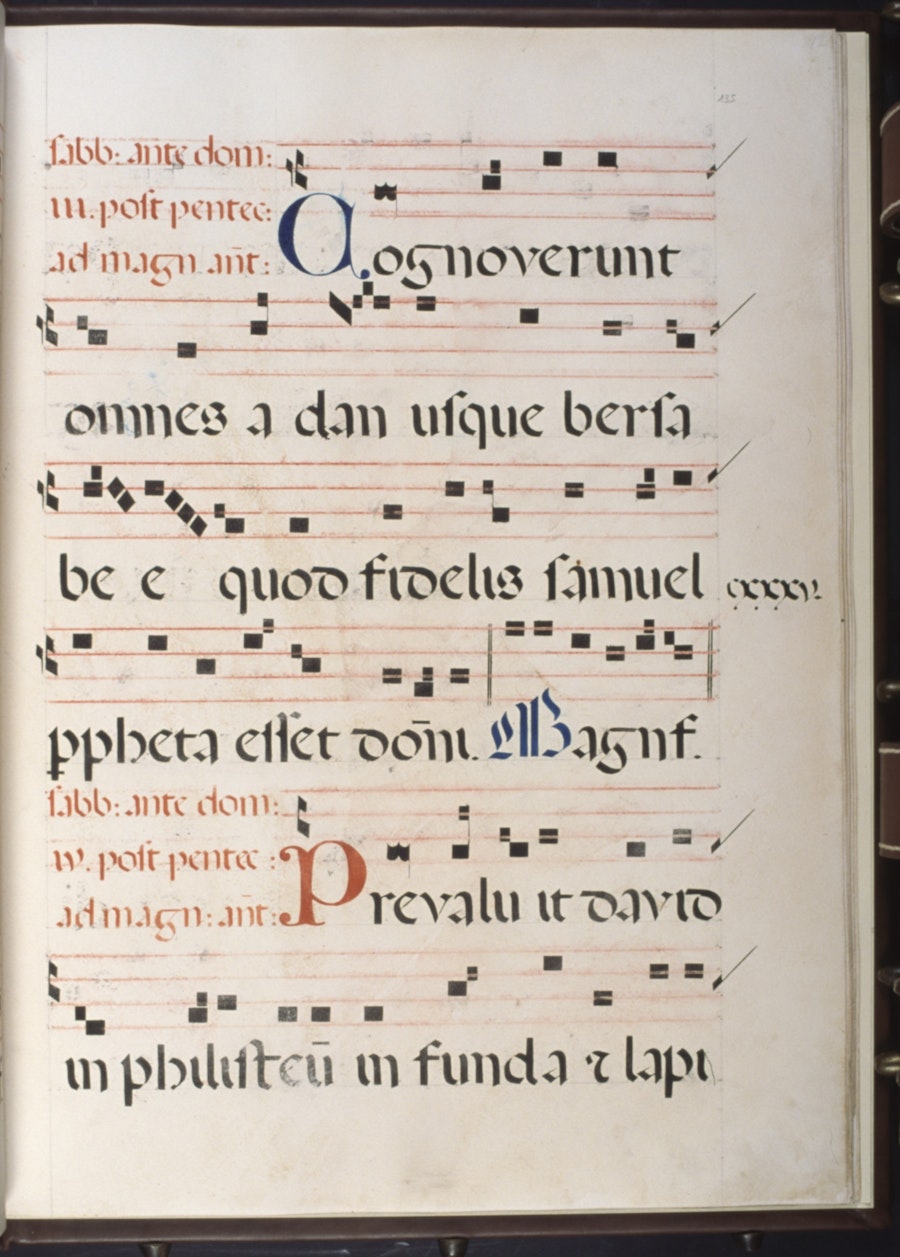 135
sabb: ante dom:
iii. post pentec:
ad magn ant:
Cognoverunt
omnes a dan usque bersa
be e quod fidelis samuel
cxxxv.
ppheta esset dōni. Magnf.
sabb: ante dom:
iv. post pentec:
ad magn: ant:
Prevalu it david
in philisteū in funda ⁊ lapi